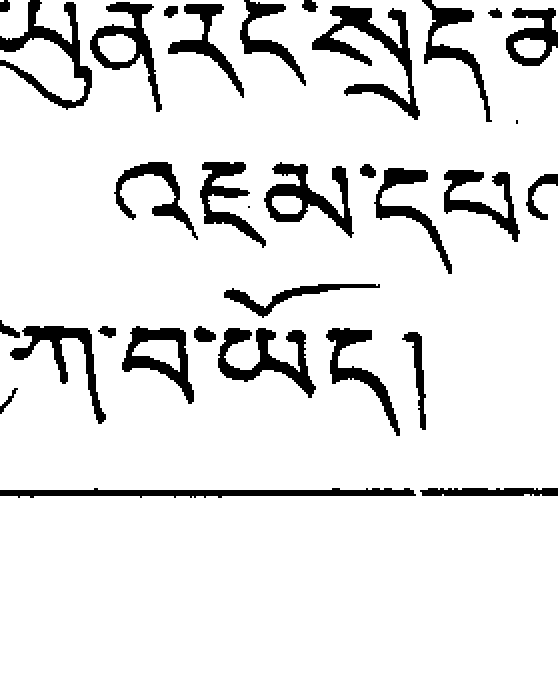 ཡུན་རིང་སྲིད་
འཇམ་དཔ
ཀ་བ་ཡོད།